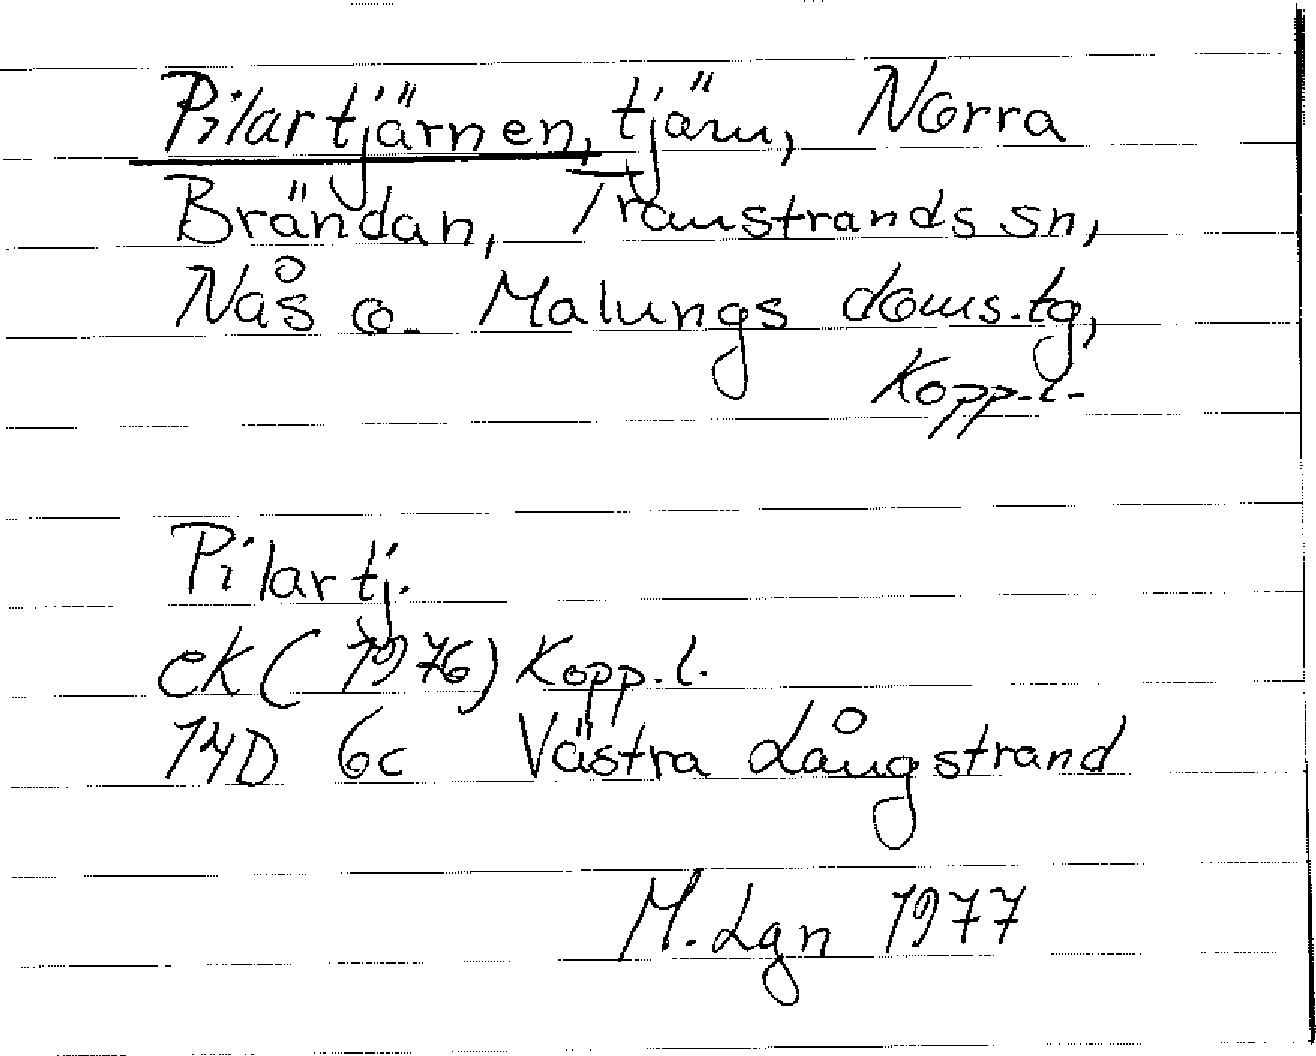 Pilartjärnen, tjärn, Norra
Brändan, Transtrands sn,
Nås o. Malungs doms.tg,
Kopp.l.
Pilartj.
ek (1976) Kopp.l.
14D 6c Västra Långstrand
M. Lgn 1977